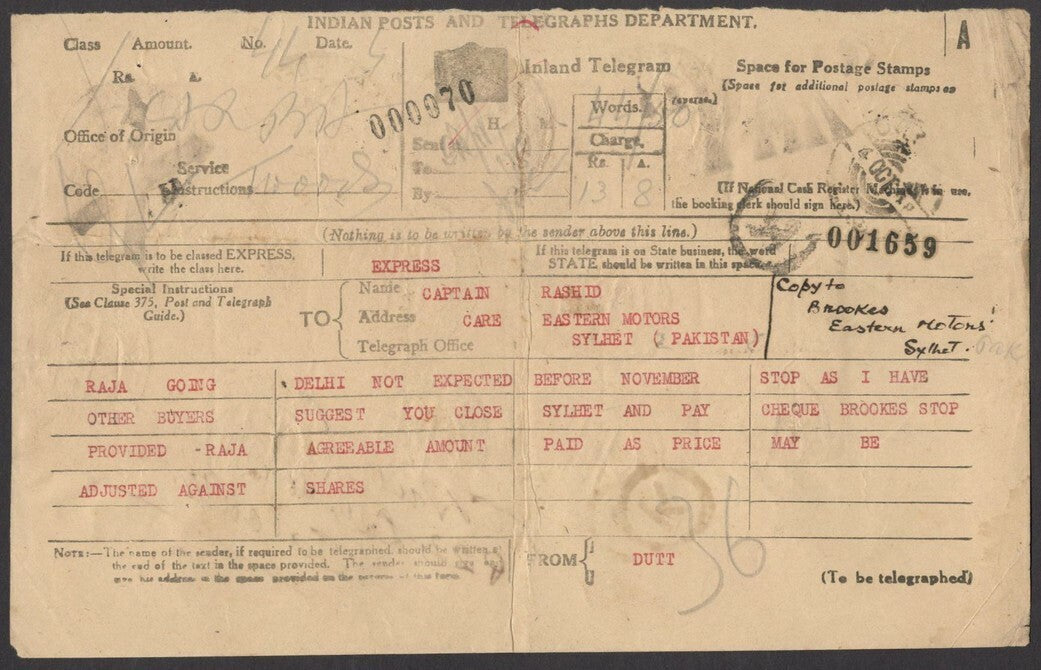 INDIAN POSTS AND TELEGRAPHS DEPARTMENT.
A
Class Amount. No. Date.
Rs. A.
44
000070
Inland Telegram
Space for Postage Stamps
(Space for additional postage stamps on
reverse.)
H. M.
Words.
Charge.
Rs. A.
13 8
Office of Origin
Sent
To
By
Service
Code Instructions
(If National Cash Register Machine is in use,
the booking clerk should sign here.)
(Nothing is to be written by the sender above this line.)
001659
If this telegram is to be classed EXPRESS,
write the class here.
EXPRESS
If this telegram is on State business, the word
STATE should be written in this space.
Special Instructions
(See Clause 375, Post and Telegraph
Guide.)
TO
Name CAPTAIN RASHID
Address CARE EASTERN MOTORS
Telegraph Office SYLHET (PAKISTAN)
Copy to
Brookes
Eastern Motors
Sylhet. Pak
RAJA GOING DELHI NOT EXPECTED BEFORE NOVEMBER STOP AS I HAVE
OTHER BUYERS SUGGEST YOU CLOSE SYLHET AND PAY CHEQUE BROOKES STOP
PROVIDED RAJA AGREEABLE AMOUNT PAID AS PRICE MAY BE
ADJUSTED AGAINST SHARES
NOTE:—The name of the sender, if required to be telegraphed, should be written at
the end of the text in the space provided. The sender should sign and
give his address in the space provided on the reverse of this form.
FROM DUTT
36
(To be telegraphed)